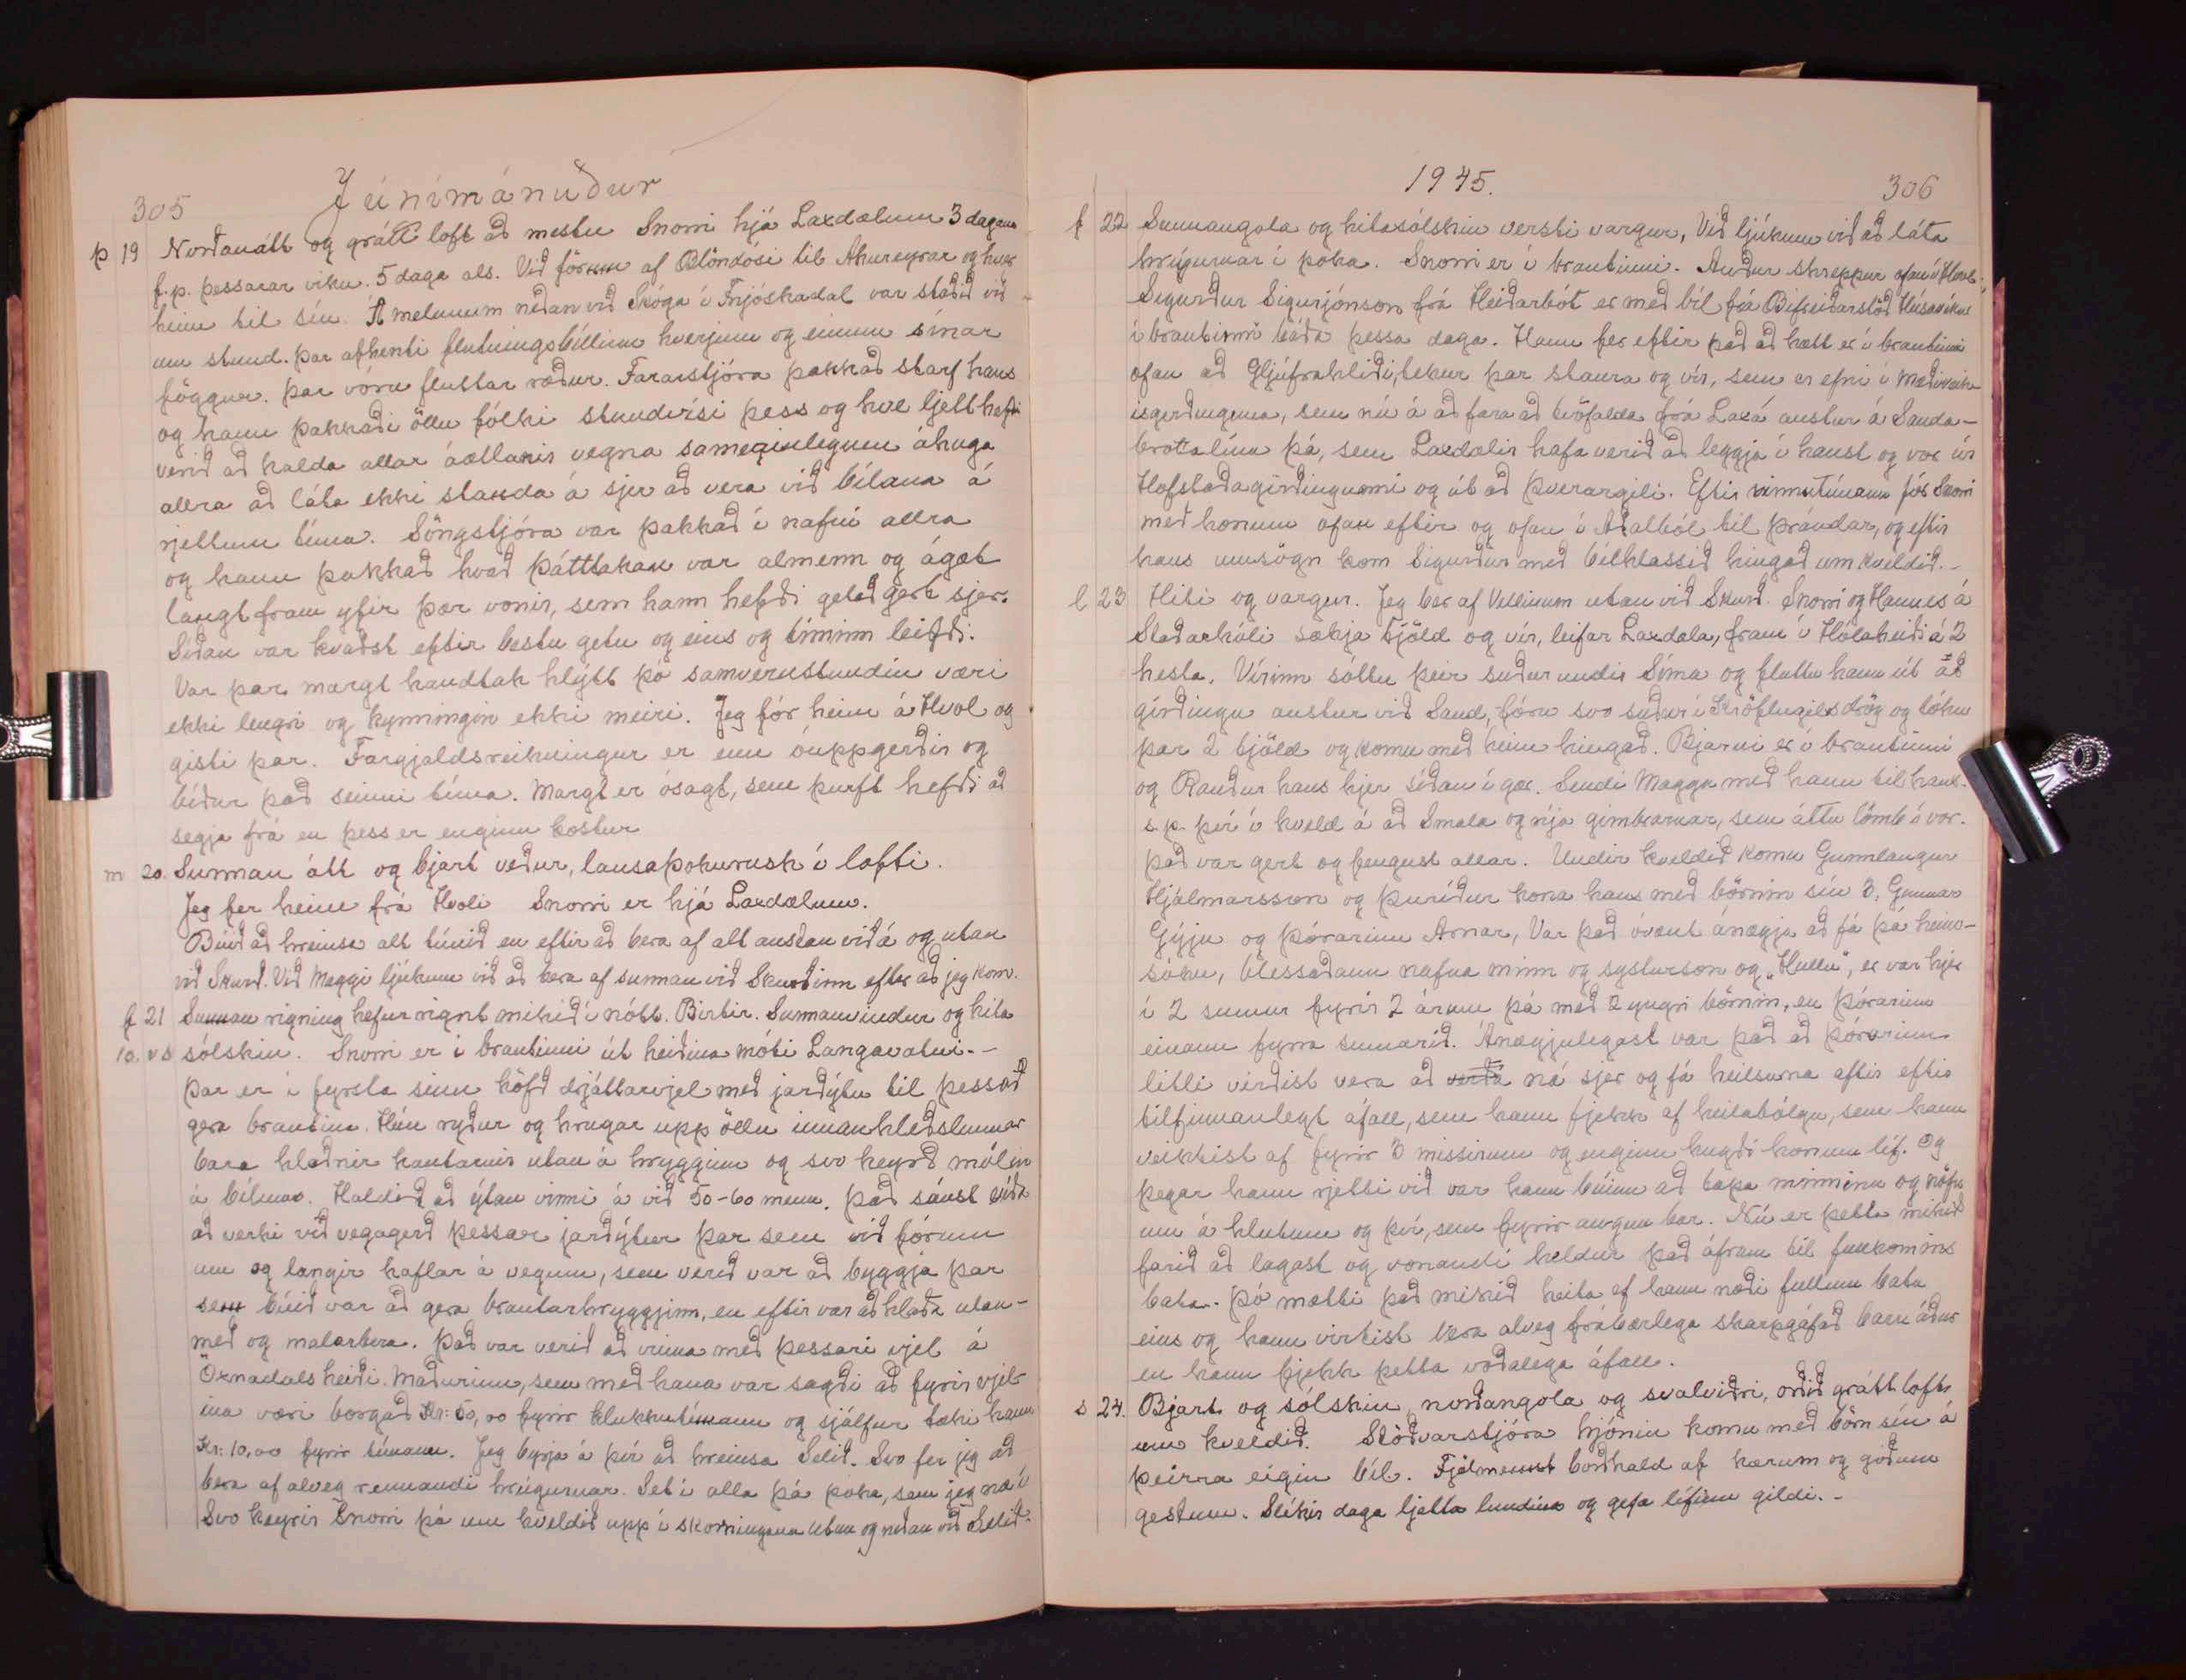 305
Júnímánuður
þ 19 Norðanátt og grátt loft að mestu Snorri hjá Laxdælum 3 dagana
f.p. þessarar viku. 5 daga als. Við förum af Blöndósi til Akureyrar og hver
heim til sín. Á melunum neðan við Skóga í Fnjóskadal var staðið við
um stund. Þar afhenti flutningsbíllinn hverjum og einum sínar
föggur. Þar vóru fluttar ræður. Fararstjóra þakkað starf hans
og hann þakkaði öllu fólki stundvísi þess og hve ljett hefði
verið að halda allar áætlanir vegna sameginlegum áhuga
allra að láta ekki standa á sjer að vera við bílana á
rjettum tíma. Söngstjóra var þakkað í nafni allra
og hann þakkað hvað þátttakan var almenn og ágæt
langt fram yfir þær vonir, sem hann hefði getað gert sjer.
Síðan var kvaðst eftir bestu getu og eins og tíminn leifði.
Var þar margt handtak hlýtt þó samverustundin væri
ekki lengri og kynningin ekki meiri. Jeg fór heim á Hvol og
gisti þar. Fargjaldsreikningur er enn óuppgerðir og
bíður það seinni tíma. Margt er ósagt, sem þurft hefði að
segja frá en þess er enginn kostur
m 20. Sunnan átt og bjart veður, lausaþokurusk í lofti.
Jeg fer heim frá Hvoli Snorri er hjá Laxdælum.
Búið að hreinsa alt túnið en eftir að bera af alt austan við á og utan
við Skurð. Við Maggi ljúkum við að bera af sunnan við Skurðinn eftir að jeg kom.
f 21 Sunnan rigning hefur rignt mikið í nótt. Birtir. Sunnanvindur og hita
10. v s sólskin. Snorri er í brautinni út heiðina móti Langavatni. -
Þar er í fyrsta sinn höfð dráttarvjel með jarðýtu til þess að
gera brautina. Hún ryður og hrúgar upp öllu innanhleðslunnar
bara hlaðnir kantarnir utan á hrygginn og svo keyrð mölin
á bílunum. Haldið að ýtan vinni á við 50-60 menn. Það sáust víða
að verki við vegagerð þessar jarðýtur þar sem við fórum
um og langir kaflar á vegum, sem verið var að byggja þar
sem búið var að gera brautarhrygginn, en eftir var að hlaða utan-
með og malarbera. Það var verið að vinna með þessari vjel á
Öxnadalsheiði. Maðurinn, sem með hana var sagði að fyrir vjel-
ina væri borgað Kr: 50,00 fyrir klukkutímann og sjálfur tæki hann
Kr: 10,00 fyrir tímann. Jeg byrja á því að hreinsa Selið. Svo fer jeg að
bera af alveg rennandi hrúgurnar. Set í alla þá poka, sem jeg næ í
Svo keyrir Snorri þá um kveldið upp í skorningana utan og neðan við Selið.
1945.
306
f 22 Sunnangola og hitasólskin versti vargur, Við ljúkum við að láta
hrúgurnar í poka. Snorri er í brautinni. Auður skreppur ofan í Hvol.
Sigurður Sigurjónson frá Heiðarbót er með bíl frá Bifreiðarstöð Húsavíkur
í brautinni báða þessa daga. Hann fer eftir það að hætt er í brautinni
ofan að Gljúfrahliði, tekur þar staura og vír, sem er efni í mæðiveiki-
isgerðingunna, sem nú á að fara að tvöfalda frá Laxá austur á Sauða-
brotalínu þá, sem Laxdælir hafa verið að leggja í haust og vor úr
Hofstaðagirðingunni og út að Þverárgili. Eftir vinnutímann fór Snorri
með honum ofan eftir og ofan í Aðalból til Þrándar, og eftir
hans umsögn kom Sigurður með bílhlassið hingað um kveldið. -
l 23 Hiti og vargur. Jeg ber af Vellinum utan við Skurð. Snorri og Hannes á
Staðarhóli sækja tjöld og vír, leifar Laxdæla, fram í Hólaheiði á 2
hesta. Vírinn sóttu þeir suður undir Síma og fluttu hann út að
girðingu austur við Sand, fóru svo suður í Kröflugilsdrög og tóku
þar 2 tjöld og komu með heim hingað. Bjarni er í brautinni
og Rauður hans hjer síðan í gær. Sendi Magga með hann til hans.
s.p. því í kveld á að Smala og rýja gimbrarnar, sem áttu lömb í vor.
Það var gert og fengust allar. Undir kveldið komu Gunnlaugur
Hjálmarsson og Þuríður kona hans með börnin sín 3, Gunnar
Gýgju og Þórarinn Arnar, Var það óvænt ánægja að fá þá heim-
sókn, blessaðann nafna minn og systurson og „Hullu“, er var hjer
í 2 sumur fyrir 2 árum þá með 2 yngri börnin, en Þórarinn
einann fyrra sumarið. Ánægjulegast var það að Þórarinn
litli virðist vera að verða ná sjer og fá heilsuna eftir eftir
tilfinnanlegt áfall, sem hann fjekk af heilabólgu, sem hann
veiktist af fyrir 3 missirum og enginn hugði honum líf. Og
þegar hann rjetti við var hann búinn að tapa minninu og nöfn
um á hlutum og því, sem fyrir augun bar. Nú er þetta mikið
farið að lagast og vonandi heldur það áfram til fullkomins
bata. Þó mætti það mikið heita ef hann næði fullum bata
eins og hann virtist vera alveg frábærlega skarpgáfað barn áður
en hann fjekk þetta voðalega áfall.
s 24. Bjart og sólskin, norðangola og svalviðri, orðið grátt lofts
um kveldið. Stöðvarstjóra hjónin komu með börn sín á
þeirra eigin bíl. Fjölmennt borðhald af kærum og góðum
gestum. Slíkir daga ljetta lundina og gefa lífinu gildi. -